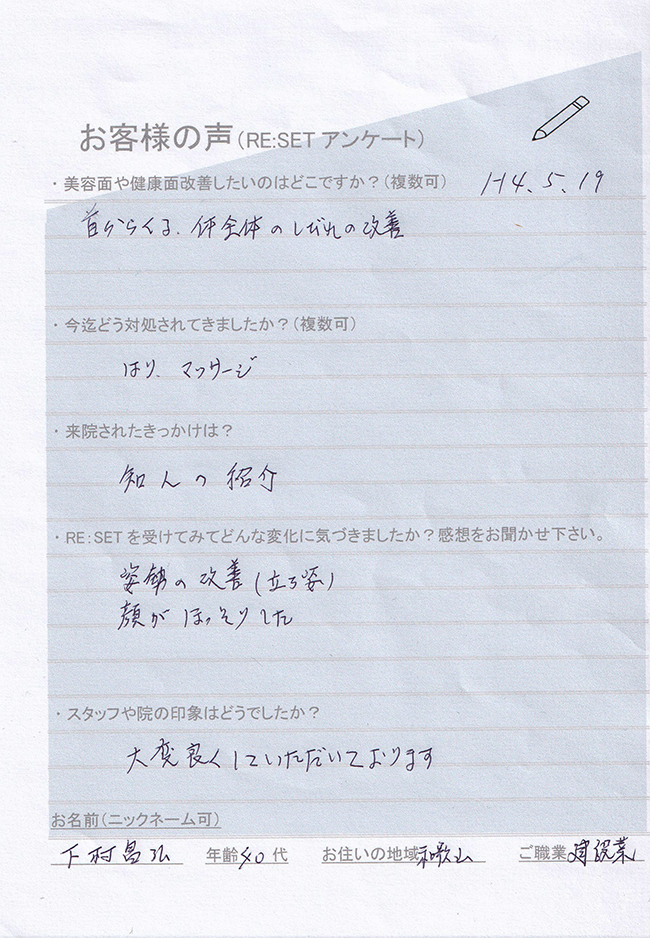 お客様の声(RE:SET アンケート)
・美容面や健康面改善したいのはどこですか?(複数可) H4.5.19
首からくる、体全体のしびれの改善
・今迄どう対処されてきましたか?(複数可)
はり、マッサージ
・来院されたきっかけは?
知人の紹介
・RE:SETを受けてみてどんな変化に気づきましたか?感想をお聞かせ下さい。
姿勢の改善(立ち姿)
顔がほっそりした
・スタッフや院の印象はどうでしたか?
大変良くしていただいております
お名前(ニックネーム可)
下村昌弘 年齢40代 お住いの地域和歌山 ご職業建設業